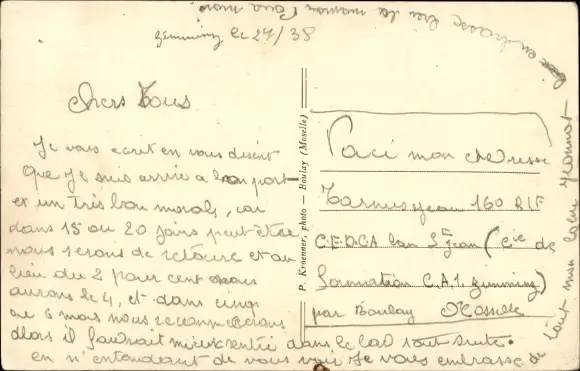 zimming le 27/38
Chers Tous
Je vous ecrit en vous disent
que Je suis arrive a bon port
et un tres bon morale, car
dans 15 ou 20 jours peut etre
nous serons de retour et au
lieu du 2 pour cent nous
aurons le 4, et dans cinq
ou 6 mois nous recommencerons
alors il faudrait mieux dans le cas tout suite.
en n'entendent de vous voir Je vous embrasse de tout mon coeur Jeannot
embrasse bien la maman pour moi
P. Kroenner, photo — Boulay (Moselle)
Voici mon adresse
Jean 160 RIF
CEDCA 3E (Cie de
formation C.A.1. zimming)
par Boulay Moselle